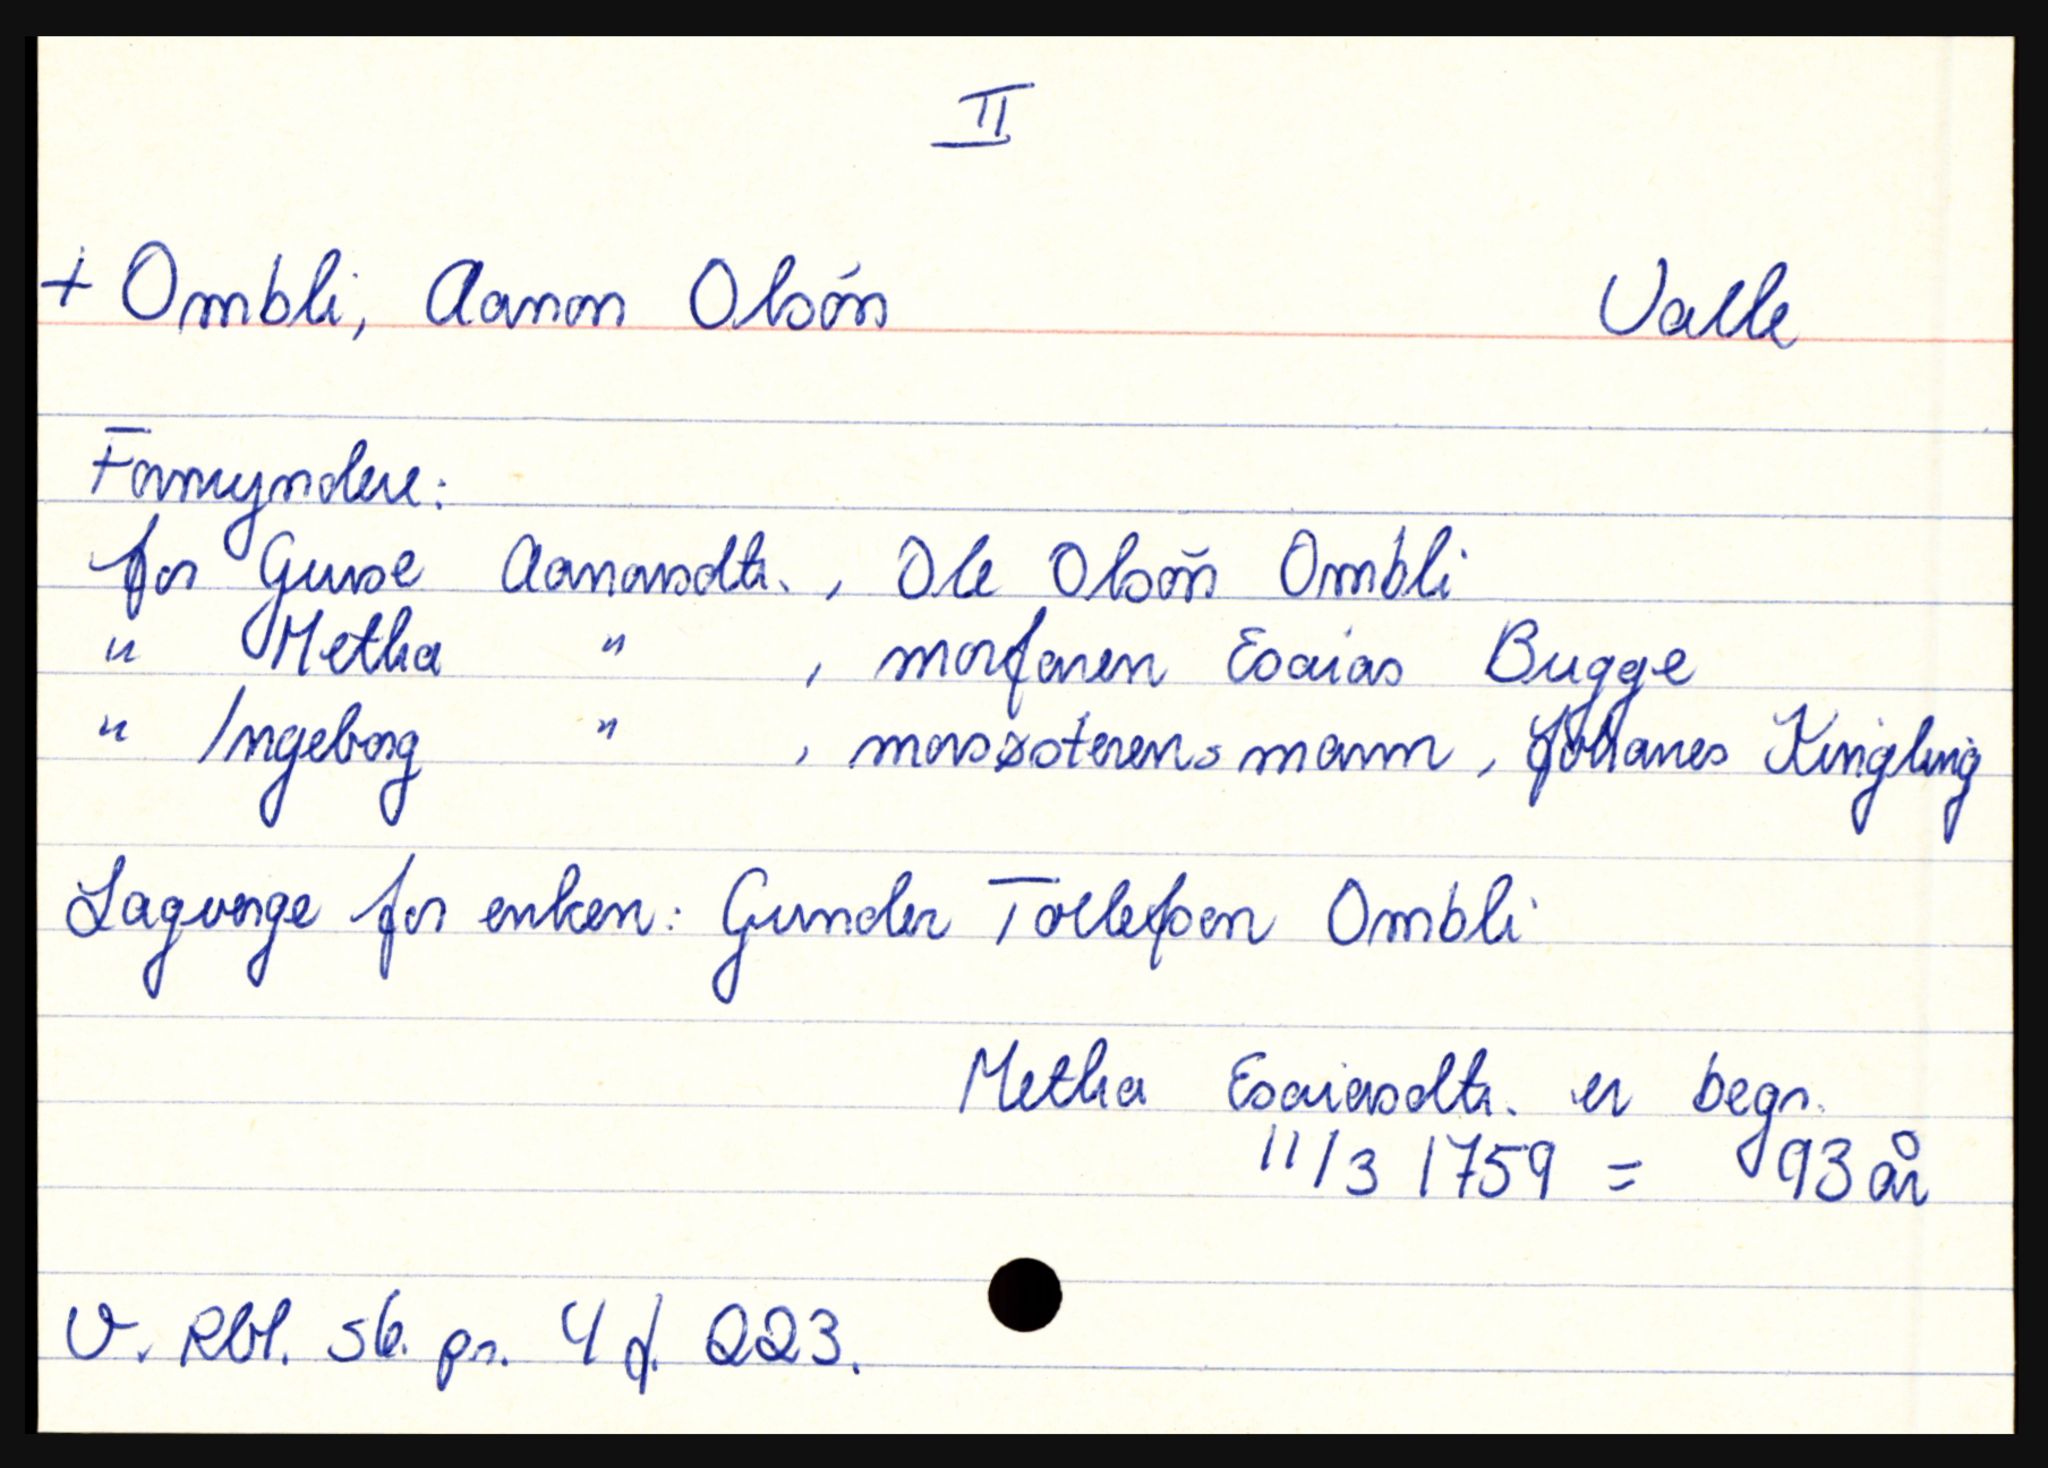 II
+ Ombli, Aanon Olsön Valle
Formyndere:
for Gurse Aanonsdtr. , Ole Olsöñ Ombli
" Metha " , morfaren Esaias Bugge
" Ingeborg " , morsøsterens mann, Johanes Kingling
Lagverge for enken: Gunder Tollefsen Ombli
Metha Esaiasdtr. er begr.
11/3 1759 = 93 år
V. Rbl. sb. pr. 4 f. 223.